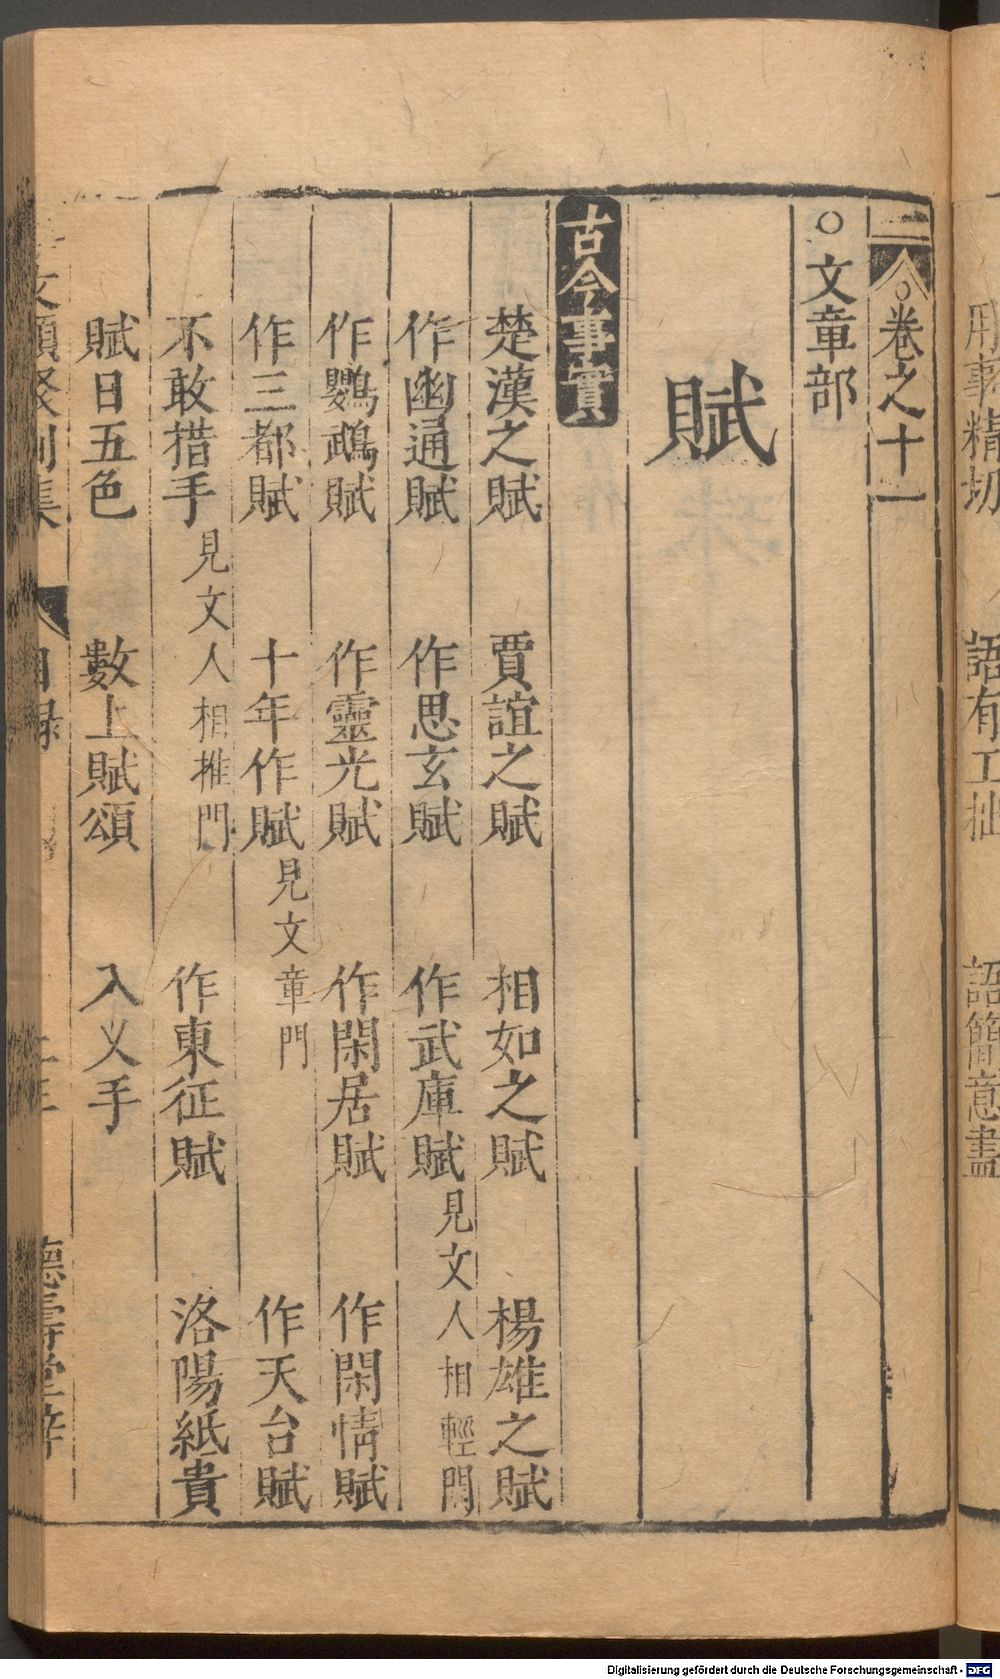 耴事精切　語有工拙　語簡意盡
二　卷之十一
○文章部
賦
古今事實
楚漢之賦　賈誼之賦　相如之賦　楊雄之賦
作幽通賦　作思玄賦　作武庫賦見文人相輕門
作鸚鵡賦　作靈光賦　作閑居賦　作閑情賦
作三都賦　十年作賦見文章門　作天台賦
不敢措手見文人相推門　作東征賦　洛陽紙貴
賦日五色　數上賦頌　入乂手
文類聚別集　目録　德壽堂梓
Digitalisierung gefördert durch die Deutsche Forschungsgemeinschaft - DFG